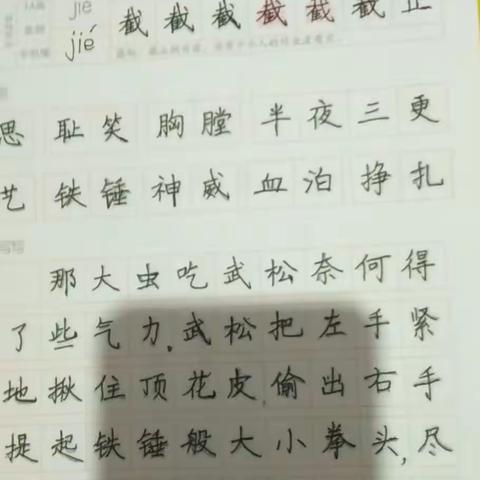 jié
jié 截 截 截 截 截 截 止
思 耻笑 胸膛 半夜三更
艺 铁锤 神威 血泊 挣扎
那大虫吃武松奈何得
了些气力。武松把左手紧
地揪住顶花皮,偷出右手
提起铁锤般大小拳头,尽